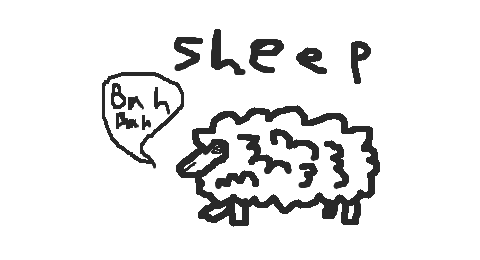 sheep
Bah
Bah